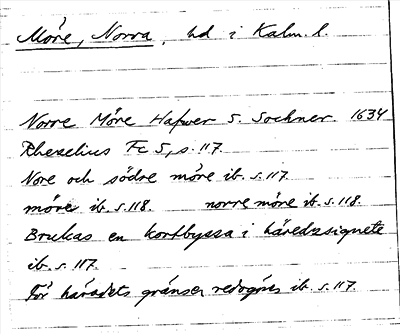 Möre, Norra, hd i Kalm. l.
Norre Möre Hafwer 5. Sochner 1634
Rhezelius Fc 5, s. 117.
Nore och södre möre ib. s. 117.
möre ib. s. 118. norre möre ib. s. 118.
Brukas en kortbyssa i häredzsignete
ib. s. 117.
För häradets gränser redogörs ib. s. 117.